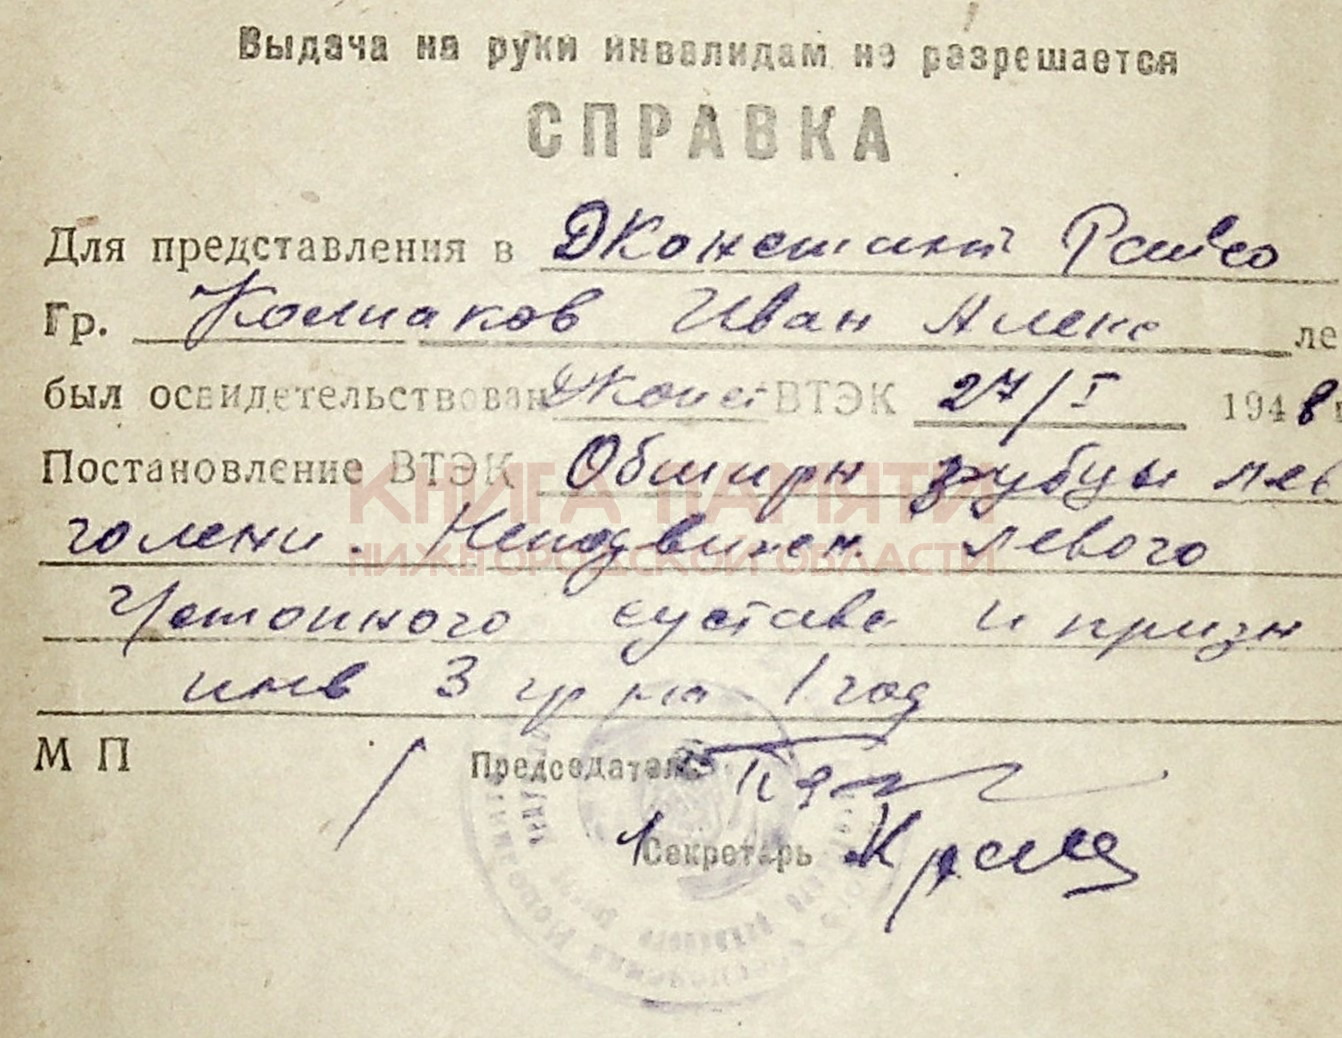 Выдача на руки инвалидам не разрешается
СПРАВКА
Для представления в Дконстант Райсо
Гр. Колпаков Иван Алекс ле
был освидетельствован Дконст ВТЭК 27/I 1948 г
Постановление ВТЭК Обширн рубцы лев
голени. Неподвижен левого
стопного сустава и призн
инв 3 гр на 1 год
М П Председатель
Секретарь
КНИГА ПАМЯТИ
НИЖЕГОРОДСКОЙ ОБЛАСТИ